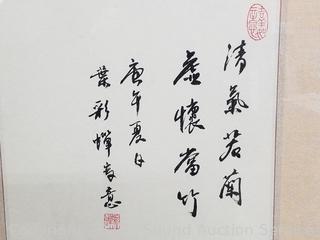 清氣若蘭
虛懷當竹
庚午夏日
葉彩書意
Sound Auction Service